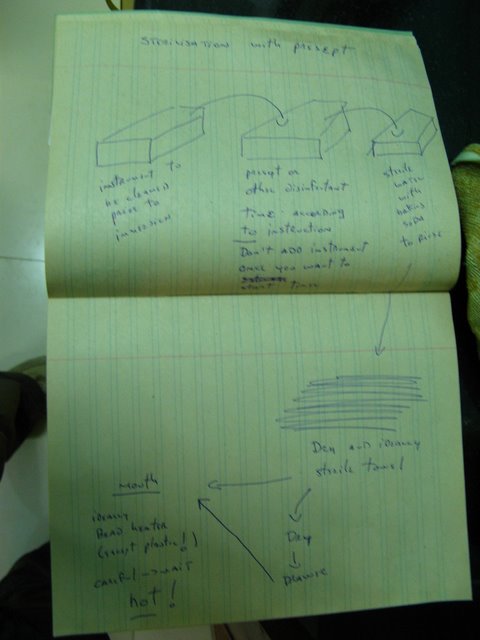 Sterilisation with presept
instrument to
be cleaned
prior to
immersion
presept or
other disinfectant
time according
to instruction
Don't add instrument
once you want to
start time
sterile
water
with
baking
soda
to rinse
Dry and ideally
sterile towel
Dry
Drawer
mouth
ideally
Bead heater
(except plastic!)
careful → wait
hot!